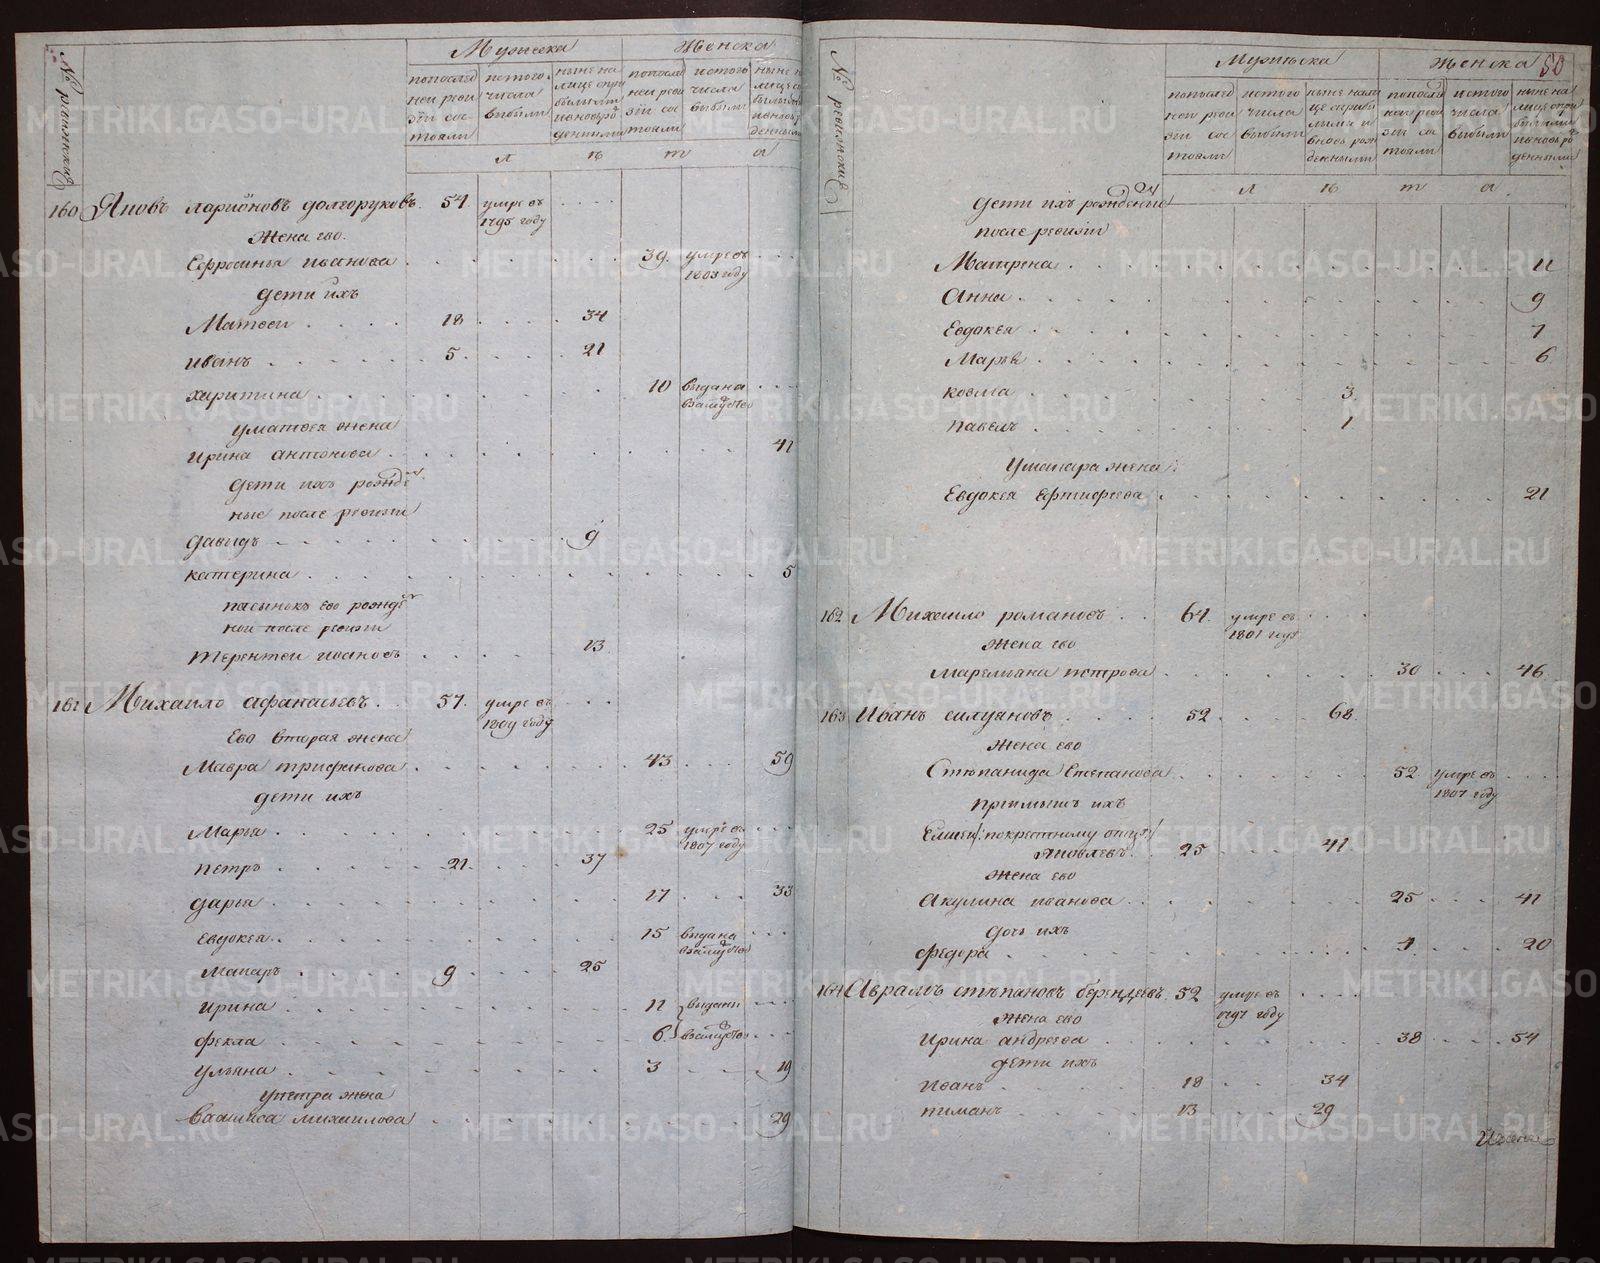 № ревижския
Мужеска
Женска
попослед ней реви зіи сос тояли
истого числа выбыли
ныне на лице
попосле ней реви зіи сос тояли
истого числа выбыли
ныне
л ѣ т а
160 Яковъ ларионовъ долгоруковъ. 54 умре въ 1795 году
Жена ево.
Ефросинья иванова 39 умре въ 1803 году
дети ихъ
Матвеи 18 34
иванъ 5 21
харитина 10 выдана взамужство
уматвея жена
ирина антонова 41
дети ихъ рожде
ные после ревизіи
давидъ 9
катерина 5
пасынокъ ево рожде
ной после ревизіи
терентеи ивановъ 13
161 Михаило афанасьевъ 57 умре въ 1809 году
Ево вторая жена
Мавра трифанова 43 59
дети ихъ
Марья 25 умре въ 1807 году
петръ 21 37
дарья 17 33
Евдокея 15 выдана взамужство
макаръ 9 25
ирина 11 выданы
фекла 6 взамужство
ульяна 3 19
упетра жена
Василиса михаилова 29
50
№ ревижския
Мужеска
Женска
попослед ней реви зіи сос тояли
истого числа выбыли
ныне нали це
попосле ней реви зіи сос тояли
истого числа выбыли
ныне на лице
л ѣ т а
дети ихъ рожденые
после ревизіи
Матрена 11
Анна 9
Евдокея 7
Марья 6
козма 3
павелъ 1
Умакара жена
Евдокея Ефтифеева 21
162 Михаило романовъ 64 умре въ 1801 году
Жена ево
Маремьяна петрова 30 46
163 Иванъ силуяновъ 52 68
Жена ево
Стѣпанида Степанова 52 умре въ 1807 году
пріимышъ ихъ
Елисеи покрестному отцу
Яковлевъ 25 41
Жена ево
Акулина иванова 25 41
дочь ихъ
федора 4 20
164 Аврамъ стѣпановъ берендеевъ 52 умре въ 1797 году
Жена ево
Ирина андреева 38 54
дети ихъ
Иванъ 18 34
пиманъ 13 29
METRIKI.GASO-URAL.RU